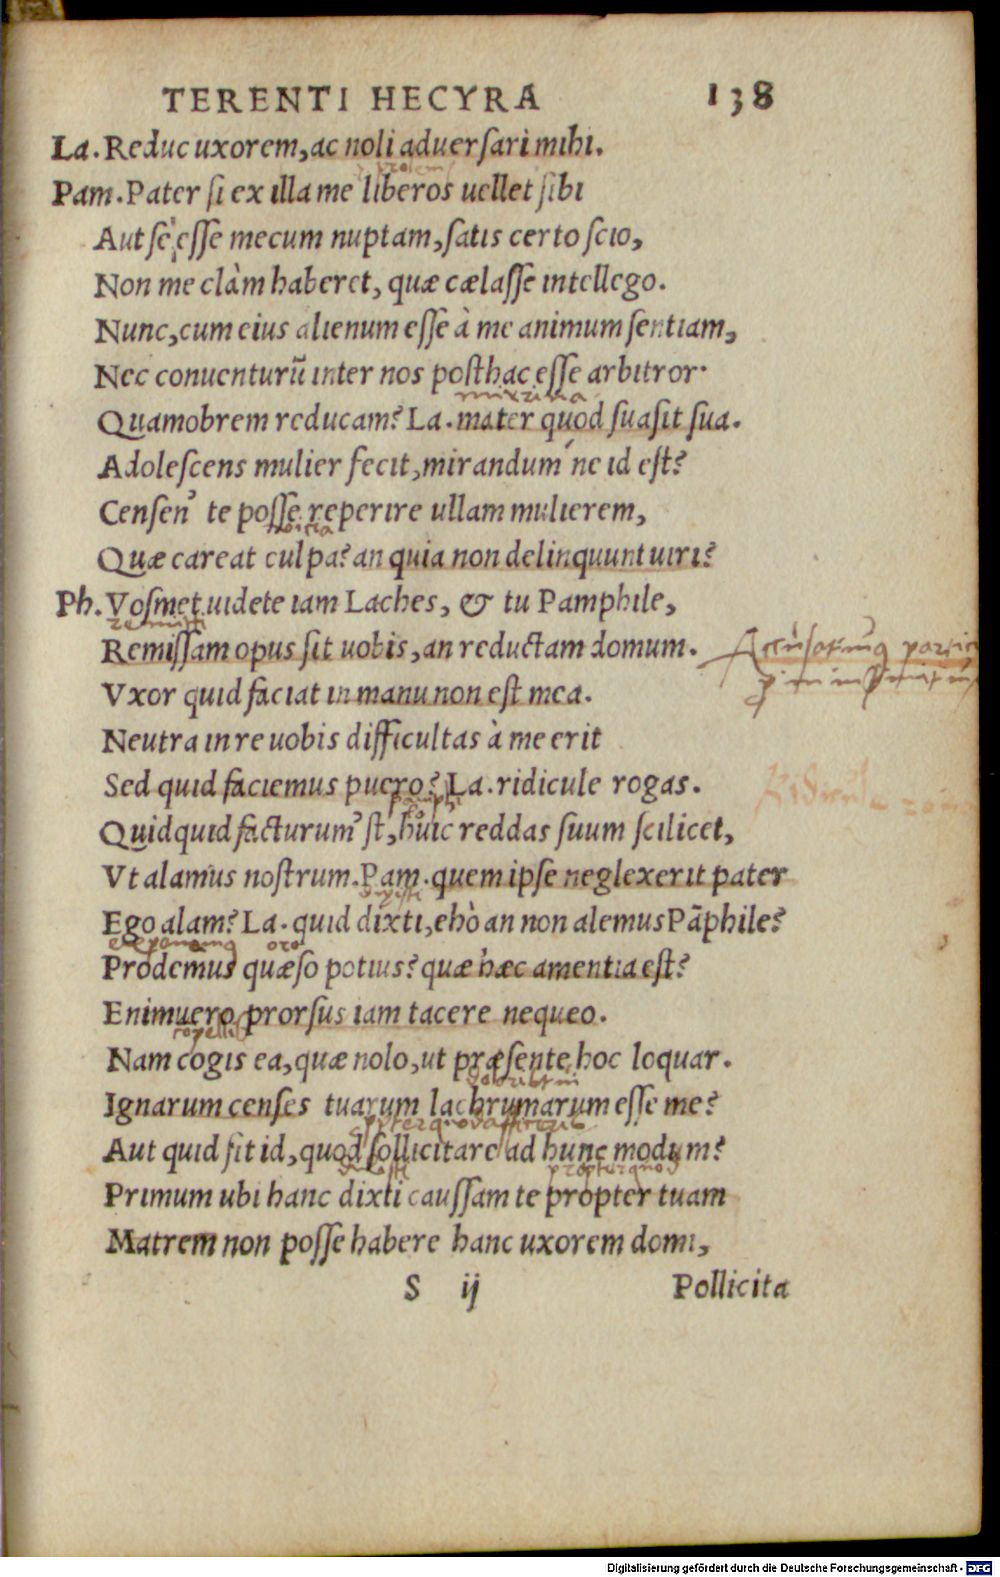 TERENTI HECYRA 138
La. Reduc uxorem, ac noli aduersari mihi.
Pam. Pater si ex illa me liberos uellet sibi
Aut se esse mecum nuptam, satis certo scio,
Non me clàm haberet, quæ cælasse intellego.
Nunc, cum eius alienum esse à me animum sentiam,
Nec conuenturū inter nos posthac esse arbitror.
Quamobrem reducam? La. mater quod suasit sua.
Adolescens mulier fecit, mirandum ne id est?
Censen' te posse reperire ullam mulierem,
Quæ careat culpa? an quia non delinquunt uiri?
Ph. Vosmet uidete iam Laches, & tu Pamphile,
remitti
Remissam opus sit uobis, an reductam domum.
Vxor quid faciat in manu non est mea.
Neutra in re uobis difficultas à me erit
Sed quid faciemus puero? La. ridicule rogas.
Quidquid facturum'st, huic reddas suum scilicet,
Vt alamus nostrum. Pam. quem ipse neglexerit pater
Ego alam? La. quid dixti, ehò an non alemus Pāphile?
oro
Prodemus quæso potius? quæ hæc amentia est?
Enimuero prorsus iam tacere nequeo.
Nam cogis ea, quæ nolo, ut præsente hoc loquar.
Ignarum censes tuarum lachrumarum esse me?
Aut quid sit id, quod sollicitare ad hunc modum?
dixisti propter quod
Primum ubi hanc dixti caussam te propter tuam
Matrem non posse habere hanc uxorem domi,
S ij Pollicita
Digitalisierung gefördert durch die Deutsche Forschungsgemeinschaft - DFG